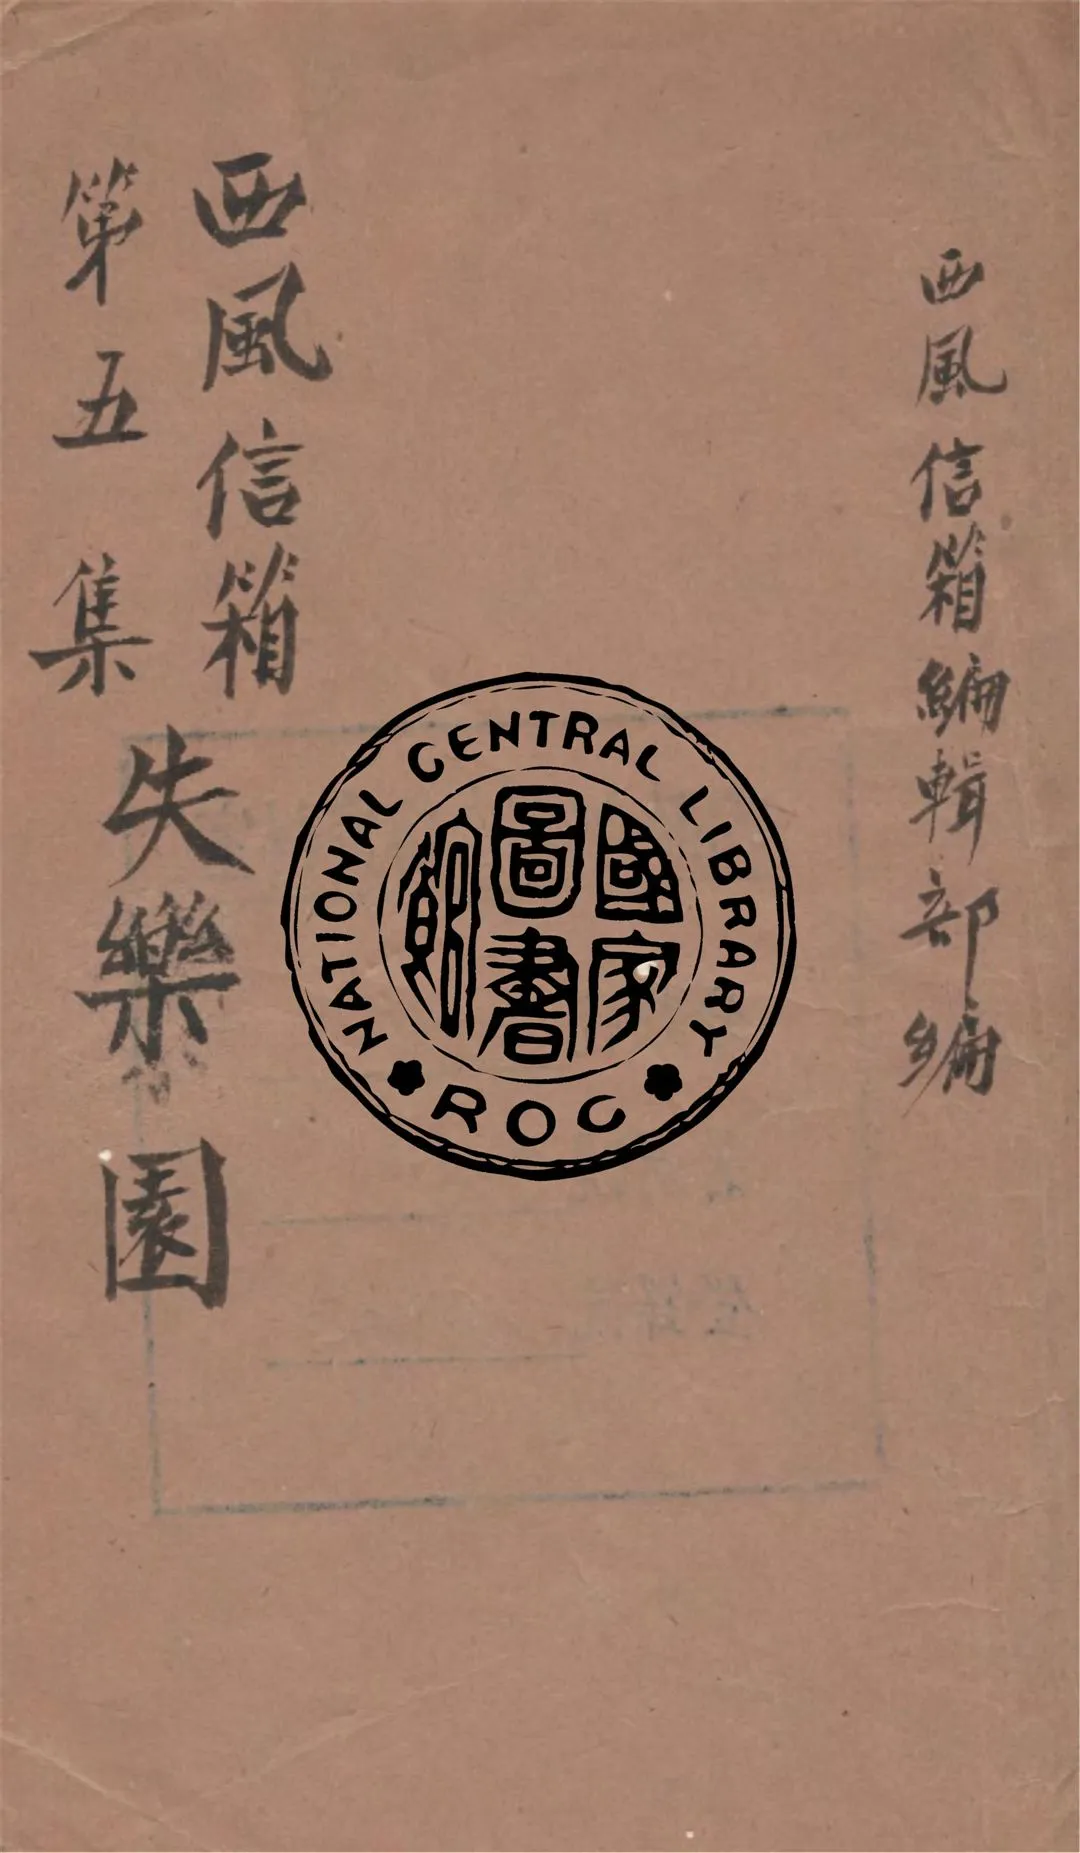 西風信箱編輯部編
西風信箱
第五集
失樂園
NATIONAL CENTRAL LIBRARY
國家
圖書
館
ROC
登錄